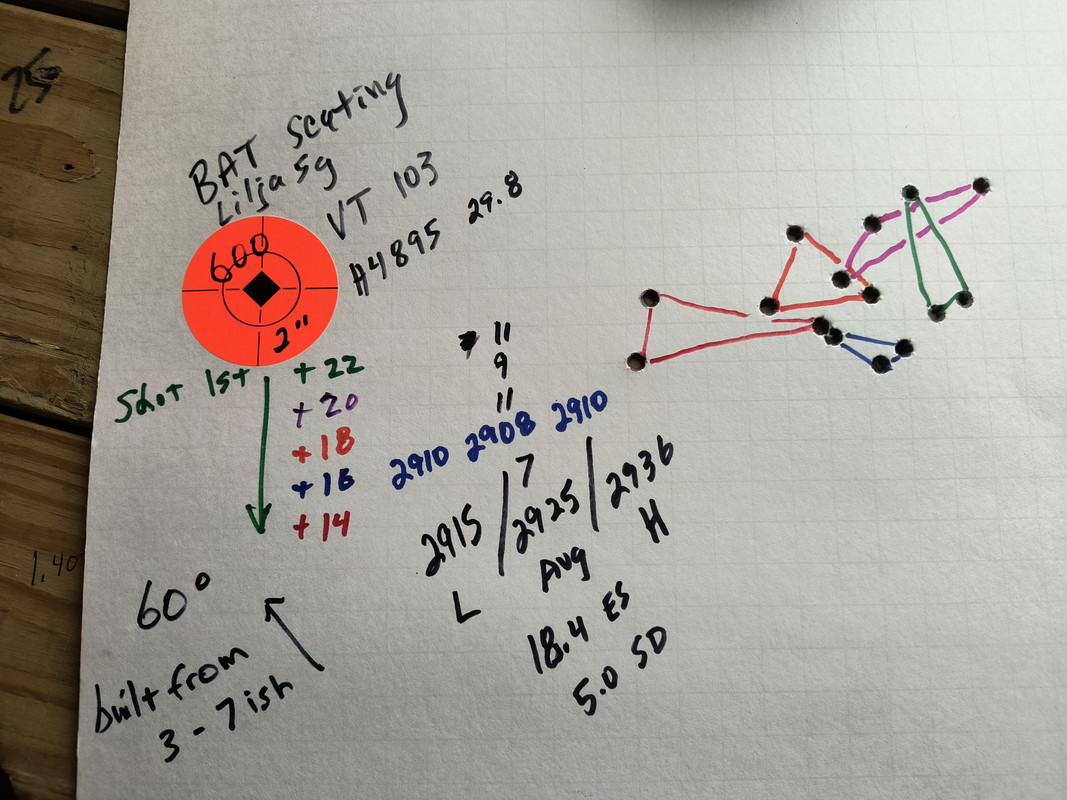 25
BAT seating
Lilja 5g
VT 103
H4895 29.8
600
2"
Shot 1st
+22
+20
+18
+16
+14
11
9
11
2910 2908 2910
7
2915 / 2925 / 2936
L Avg H
18.4 ES
5.0 SD
60°
built from
3-7ish
1.40